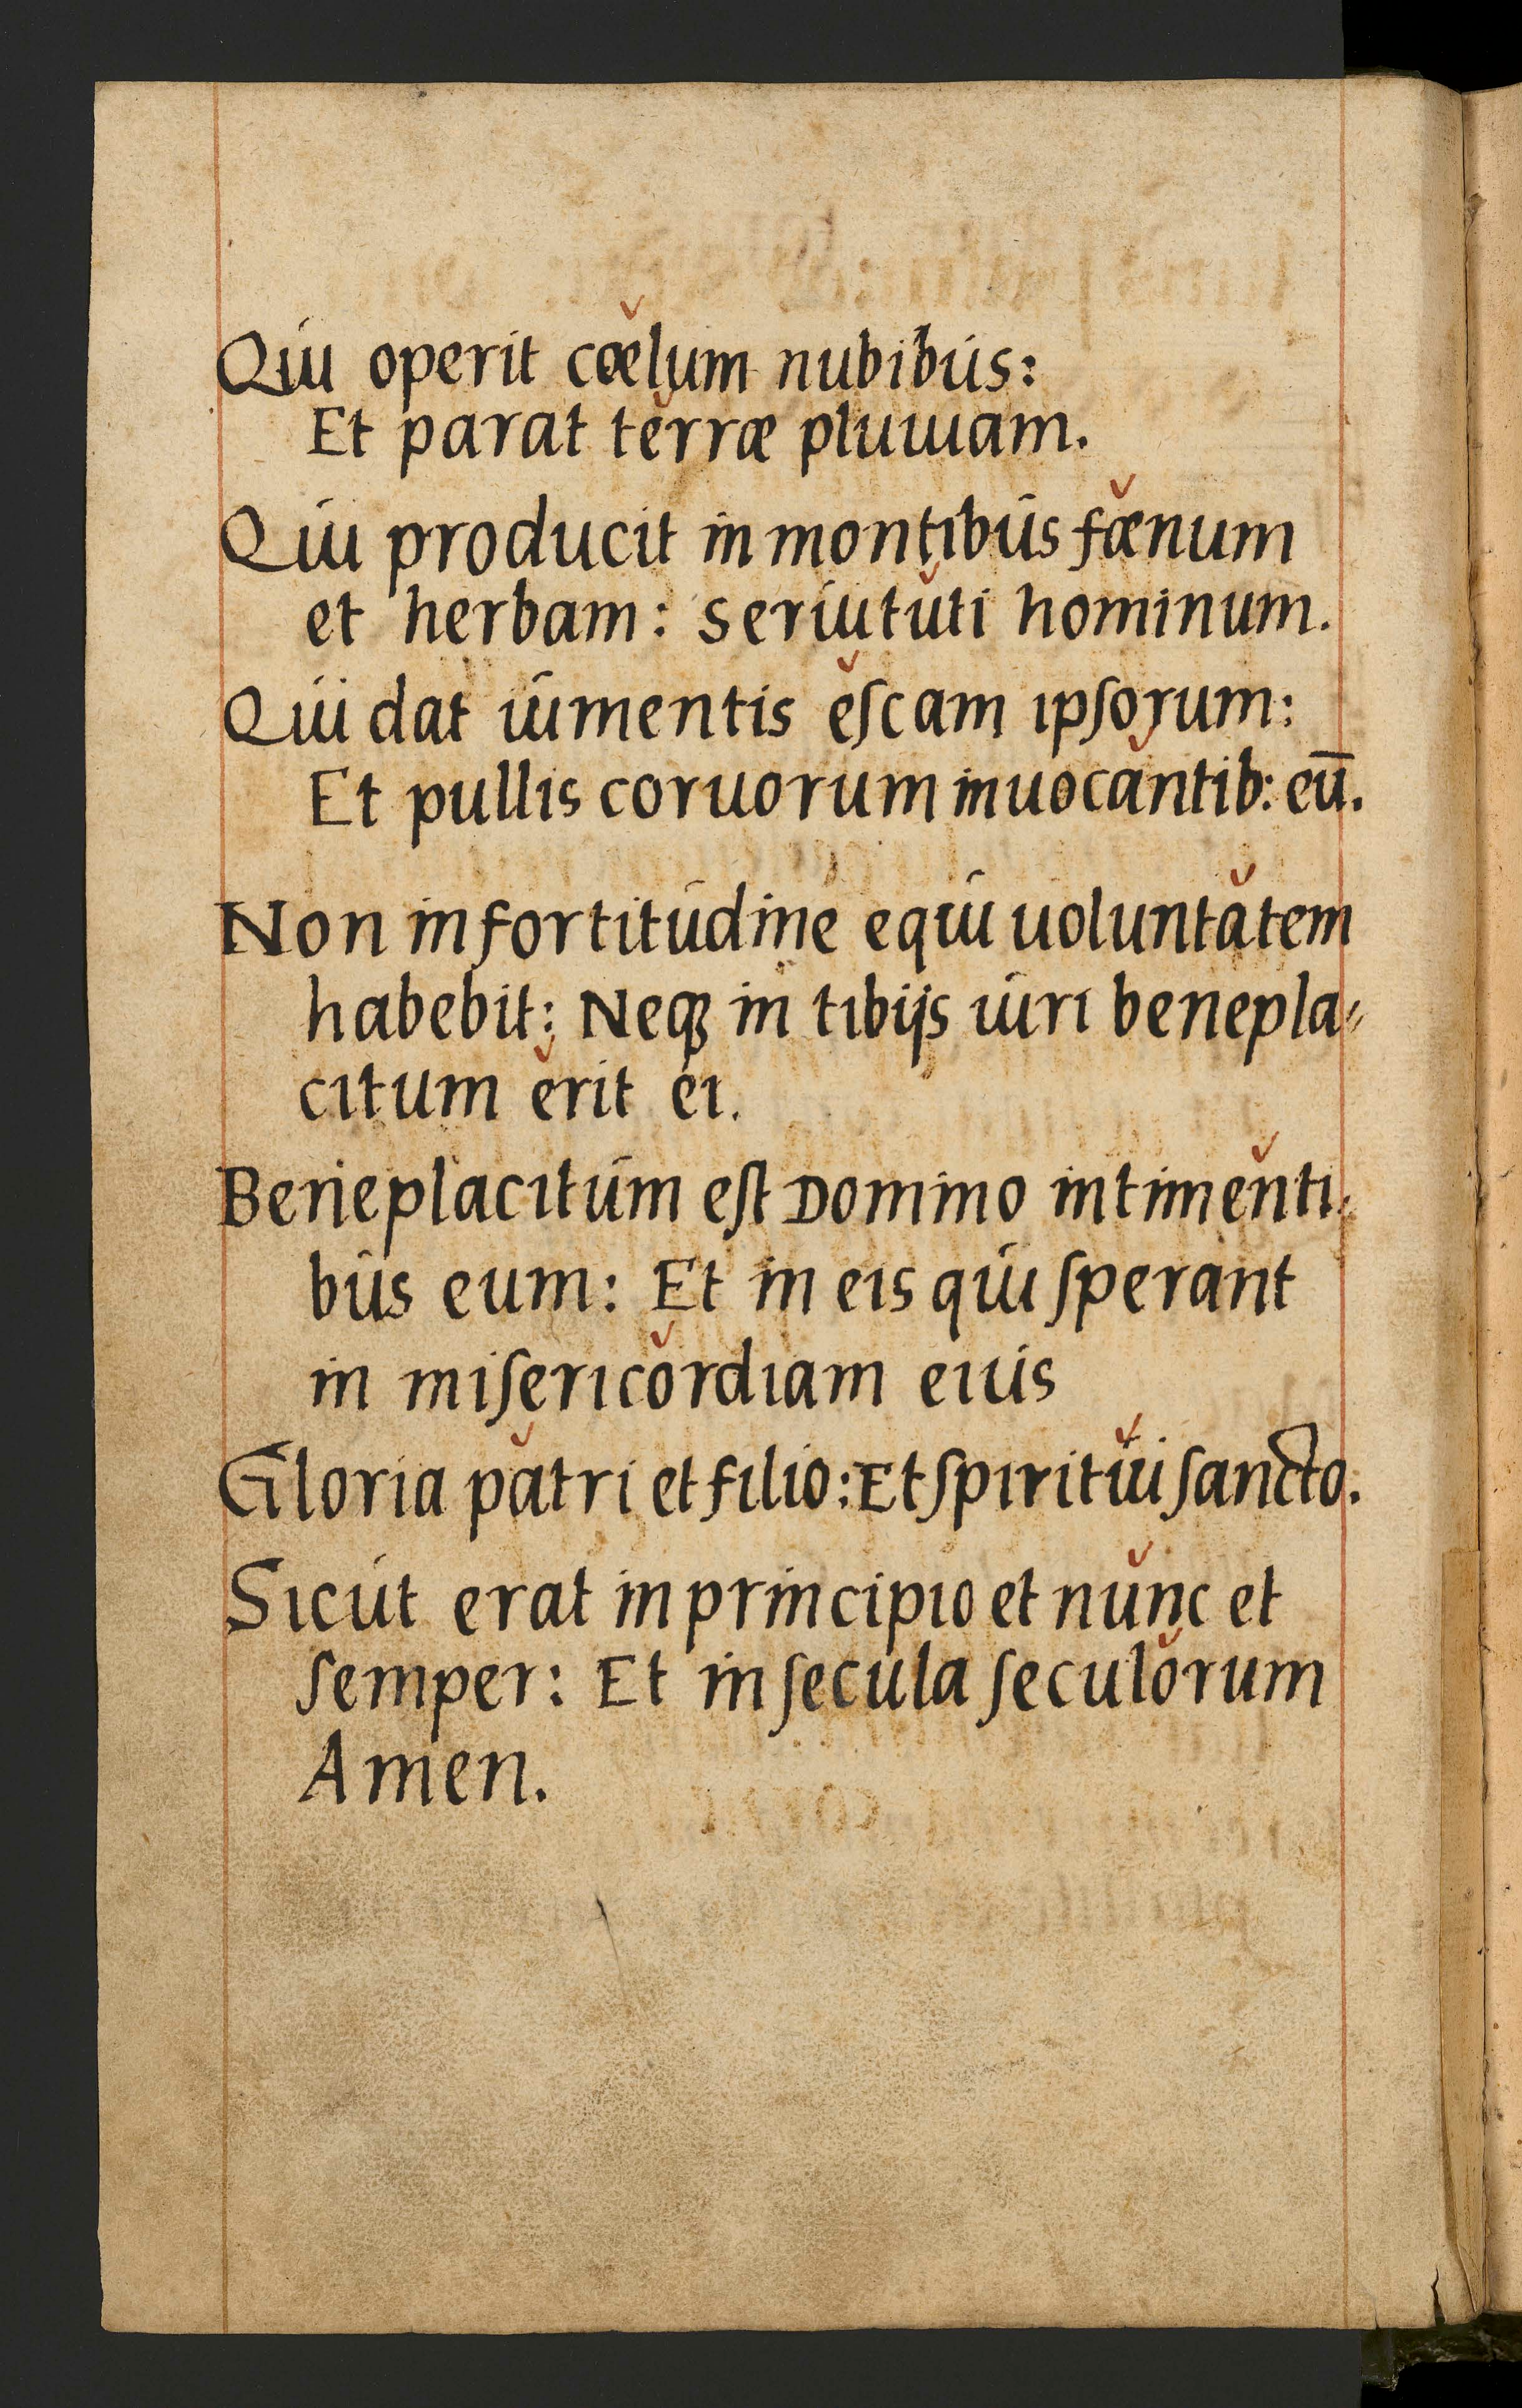 Qui operit cœlum nubibus:
Et parat terræ pluuiam.
Qui producit in montibus fœnum
et herbam: seruituti hominum.
Qui dat iumentis eſcam ipſorum:
Et pullis coruorum inuocantib: eū.
Non in fortitudine equi uoluntatem
habebit: Neqꝫ in tibijs uiri benepla⸗
citum erit ei.
Beneplacitum eſt Domino in timenti⸗
bus eum: Et in eis qui ſperant
in miſericordiam eius
Gloria patri et filio: Et ſpiritui ſancto.
Sicut erat in principio et nunc et
ſemper: Et in ſecula ſeculorum
Amen.